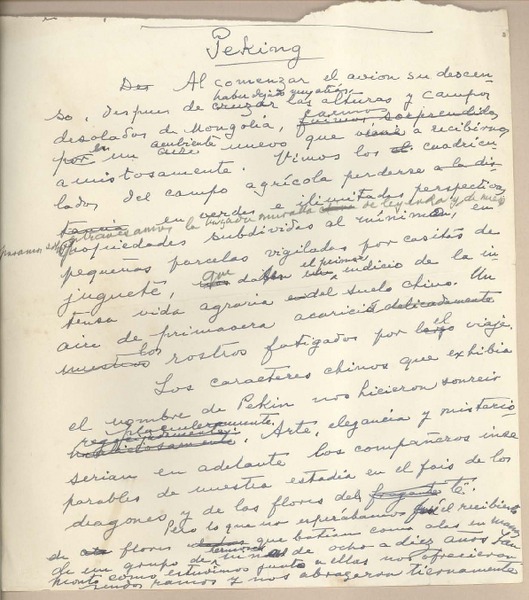 Peking
Al comenzar el avion su descen
haber dejado muy atrás
so, despues de cruzar las alturas y campos
desolados de Mongolia, caimos sorprendidos
en ambiente
por un nuevo que venia a recibirnos
amistosamente. Vimos los cuadricu
lados del campo agrícola perderse a la dis
tancia en verdes e ilimitadas perspectivas
atravesamos la vieja muralla de leyenda y de
propiedades subdivididas al mínimo, en
pequeñas parcelas vigiladas por casitas de
juguete, que daban el primer indicio de la in
tensa vida agraria del suelo chino. Un
aire de primavera acarició delicadamente
nuestros los rostros fatigados por el largo viaje.
Los caracteres chinos que exhibia
el nombre de Pekin nos hicieron sonreir
placenteramente.
Arte, elegancia y misterio
serian en adelante los compañeros inse
parables de nuestra estadía en el pais de los
dragones y de las flores del fragante té.
Pero lo que no esperábamos fué el recibimiento
de flores que batian como alas en manos
de un grupo de niñas de ocho a diez años. Tan
pronto como estuvimos junto a ellas nos ofrecieron
sendos ramos y nos abrazaron tiernamente